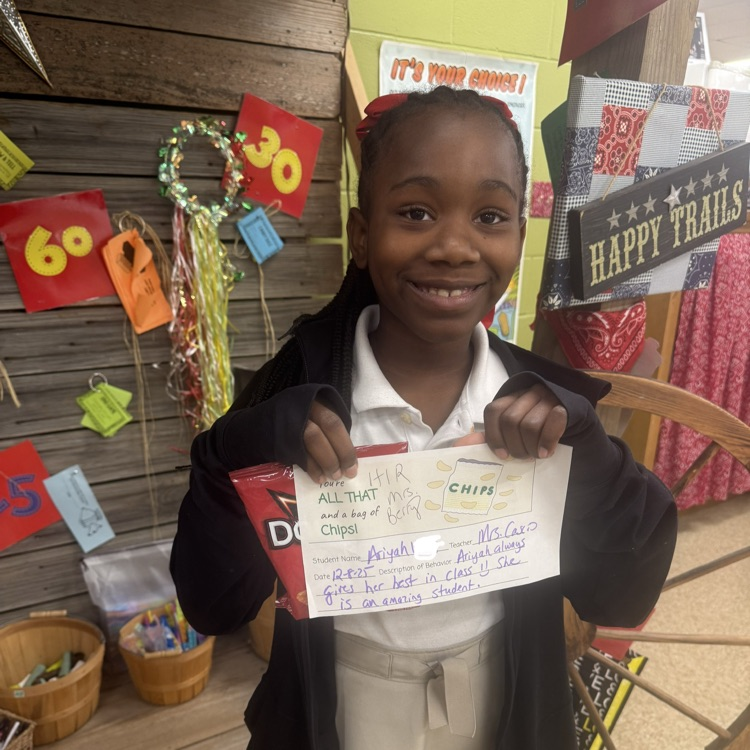 IT'S YOUR CHOICE!
30
60
HAPPY TRAILS
5
DO
You're HR
ALL THAT Mrs.
and a bag of Berry
Chips!
CHIPS
Student Name Ariyah Teacher Mrs. Caro
Date 12-8-25 Description of Behavior Ariyah always
gives her best in class!! She
is an amazing student.